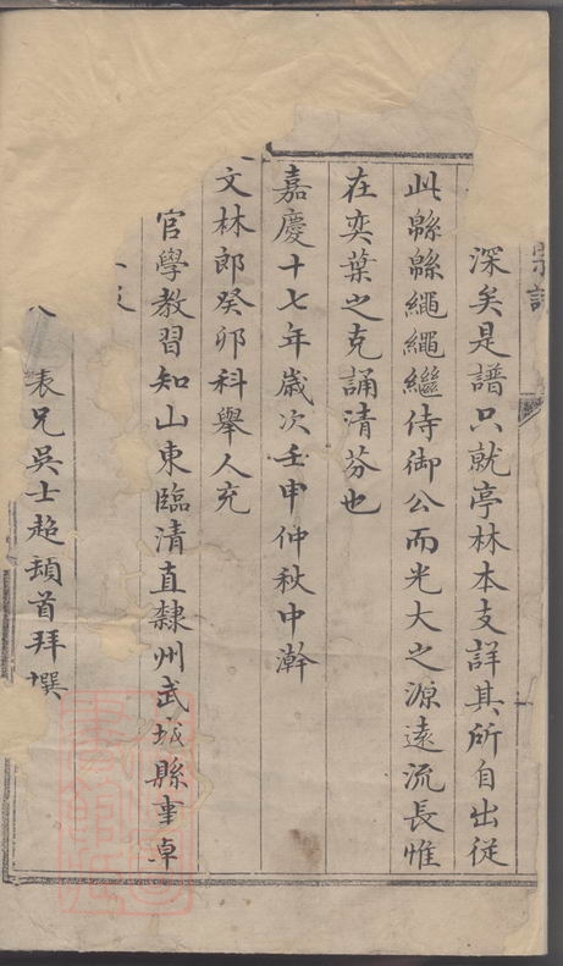 宗譜
深矣是譜只就亭林本支詳其所自出從
此緜緜繩繩繼侍御公而光大之源遠流長惟
在奕葉之克誦清芬也
嘉慶十七年歲次壬申仲秋中澣
文林郎癸卯科舉人充
官學教習知山東臨清直隸州武城縣事卓
表兄吳士超頓首拜撰